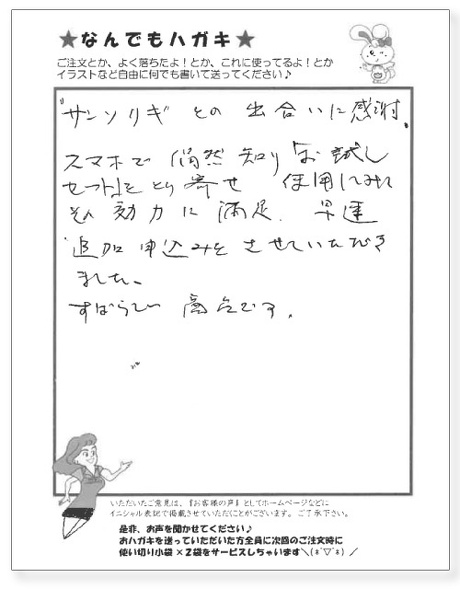 ★なんでもハガキ★
ご注文とか、よく落ちたよ!とか、これに使ってるよ!とか
イラストなど自由に何でも書いて送ってください♪
"サンソリギ との 出合いに感謝"
スマホで 偶然 知り お試し
セットをとり寄せ 使用してみて
その 効力 に 満足. 早速
追加 申込みを させていただき
ました。
すばらしい 商品です.
いただいたご意見は、『お客様の声』としてホームページなどに
イニシャル表記で掲載させていただくことがございます。ご了承下さい。
是非、お声を聞かせてください♪
おハガキを送っていただいた方全員に次回のご注文時に
使い切り小袋×2袋をサービスしちゃいます＼(*´▽`*)／